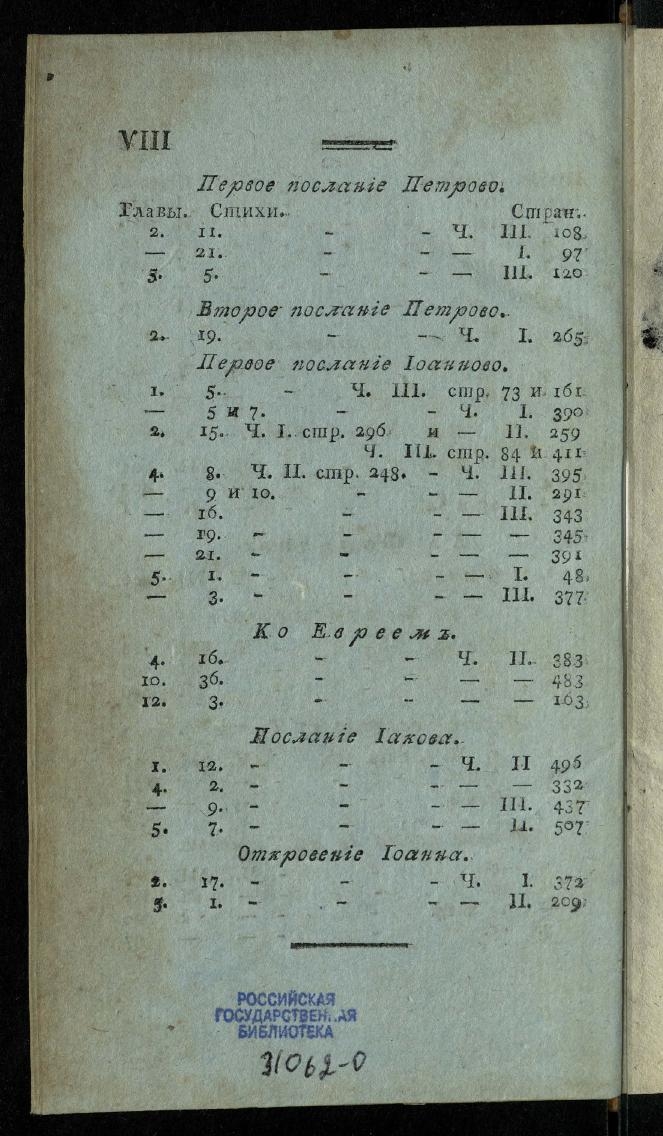 VIII
Первое посланіе Петрово.
Главы. Стихи. Стран.
2. 11. - - Ч. III. 108
— 21. - - — I. 97
5. 5. - - — III. 120
Второе посланіе Петрово.
2. 19. - - Ч. I. 265
Первое посланіе Іоанново.
1. 5. - Ч. III. стр. 73 и 161
— 5 и 7. - - Ч. I. 390
2. 15. Ч. I. стр. 296 и — II. 259
Ч. III. стр. 84 и 411
4. 8. Ч. II. стр. 248. - Ч. III. 395
— 9 и 10. - - — II. 291
— 16. - - — III. 343
— 19. - - - — — 345
— 21. - - - — — 391
5. 1. - - - — I. 48
— 3. - - - — III. 377
Ко Евреемъ.
4. 16. - - Ч. II. 383
10. 36. - - — — 483
12. 3. - - — — 163
Посланіе Іакова.
1. 12. - - - Ч. II 496
4. 2. - - - — — 332
— 9. - - - — III. 437
5. 7. - - - — II. 507
Откровеніе Іоанна.
2. 17. - - - Ч. I. 372
3. 1. - - - — II. 209
РОССИЙСКАЯ
ГОСУДАРСТВЕННАЯ
БИБЛИОТЕКА
31062-0